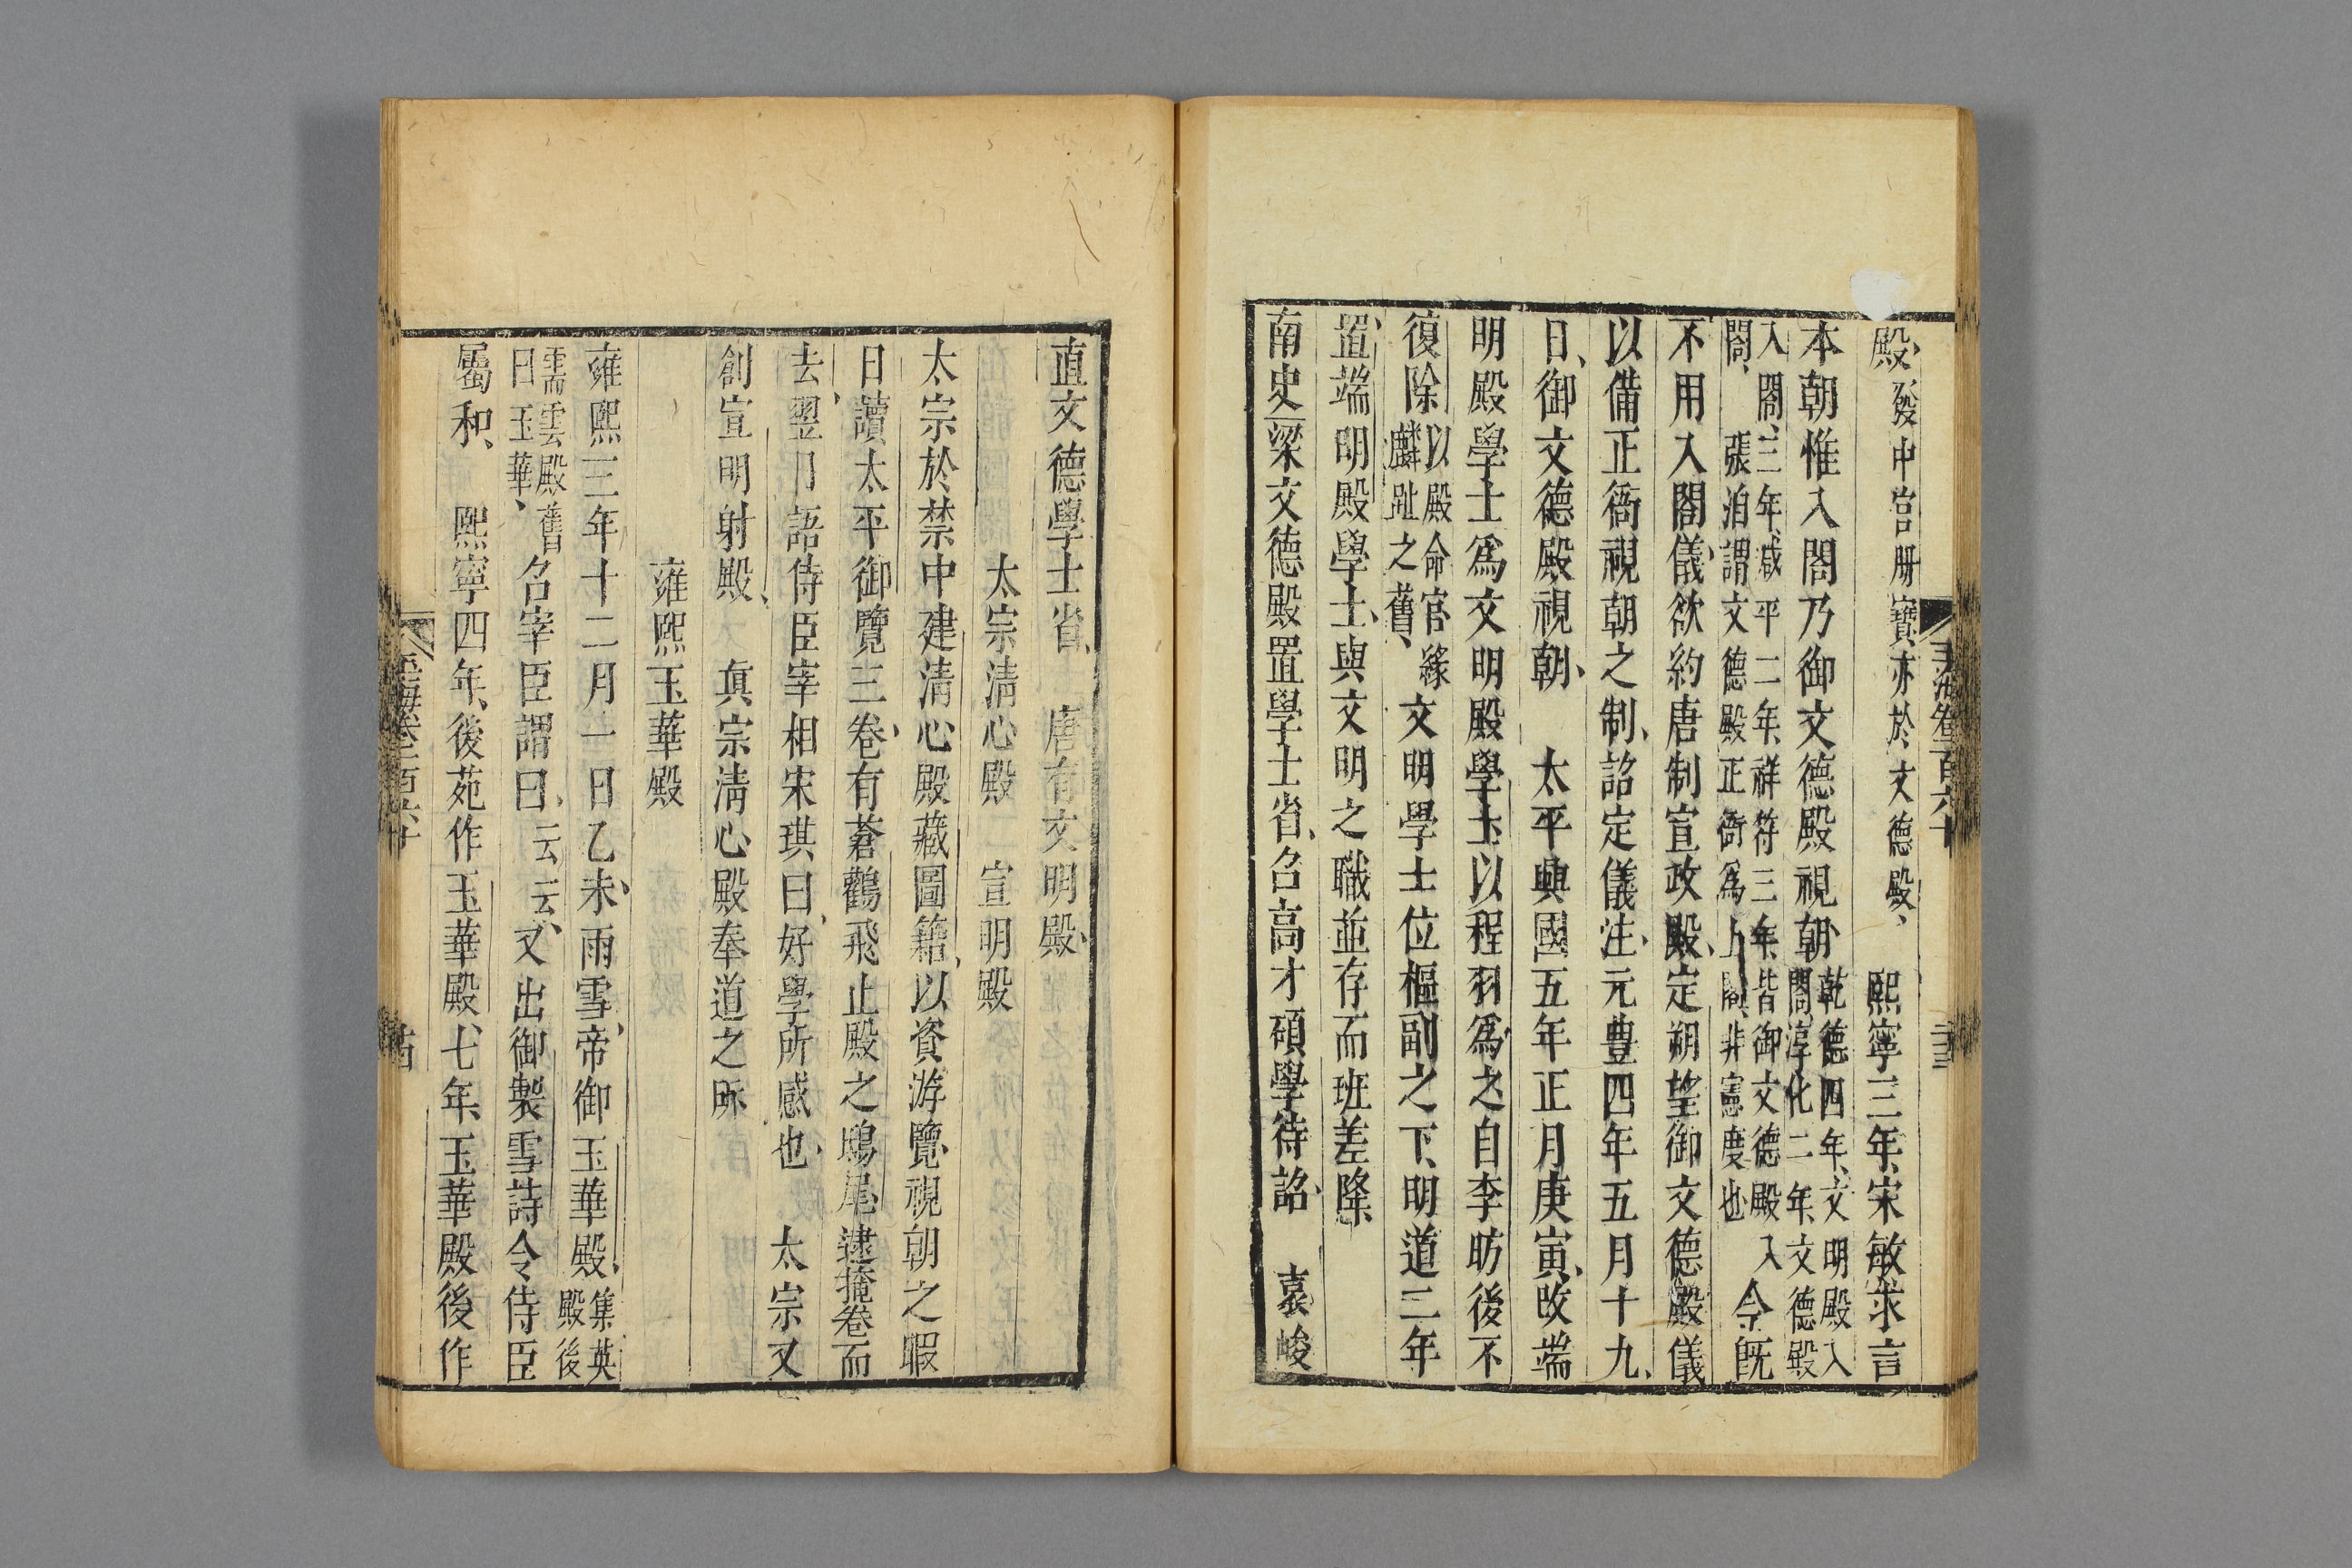 殿發中宮册寶亦於文德殿、　熙寧三年、宋敏求言
本朝惟入閤乃御文德殿視朝、乾德四年、文明殿入閤、淳化二年、文德殿
入閤、三年、咸平二年、祥符三年、皆御文德殿入閤、張洎謂文德殿正衙爲上閤、非憲度也　今旣
不用入閤儀、欲約唐制宣政殿、定朔望御文德殿儀
以備正衙視朝之制、詔定儀注、元豊四年五月十九、
日、御文德殿視朝、　太平興國五年正月庚寅、改端
明殿學士爲文明殿學士、以程羽爲之、自李昉後不
復除以殿命官緣麟趾之舊、文明學士位樞副之下、明道二年
置、端明殿學士、與文明之職並存而班差降
南史梁文德殿置學士省、召高才碩學待詔、　袁峻
直文德學士省、　唐有文明殿、
太宗淸心殿　宣明殿
太宗於禁中建淸心殿藏圖籍、以資游覽、視朝之暇
日讀太平御覽三卷、有蒼鸛飛止殿之鴟尾、逮掩卷而
去、翌日語侍臣、宰相宋琪曰、好學所感也、　太宗又
創宣明射殿、　眞宗淸心殿奉道之所
雍熙玉華殿
雍熙三年十二月一日乙未、雨雪、帝御玉華殿、集英殿後
需雲殿舊曰玉華、召宰臣謂曰、云云、又出御製雪詩令侍臣
屬和、　熙寧四年、後苑作玉華殿、七年、玉華殿後作